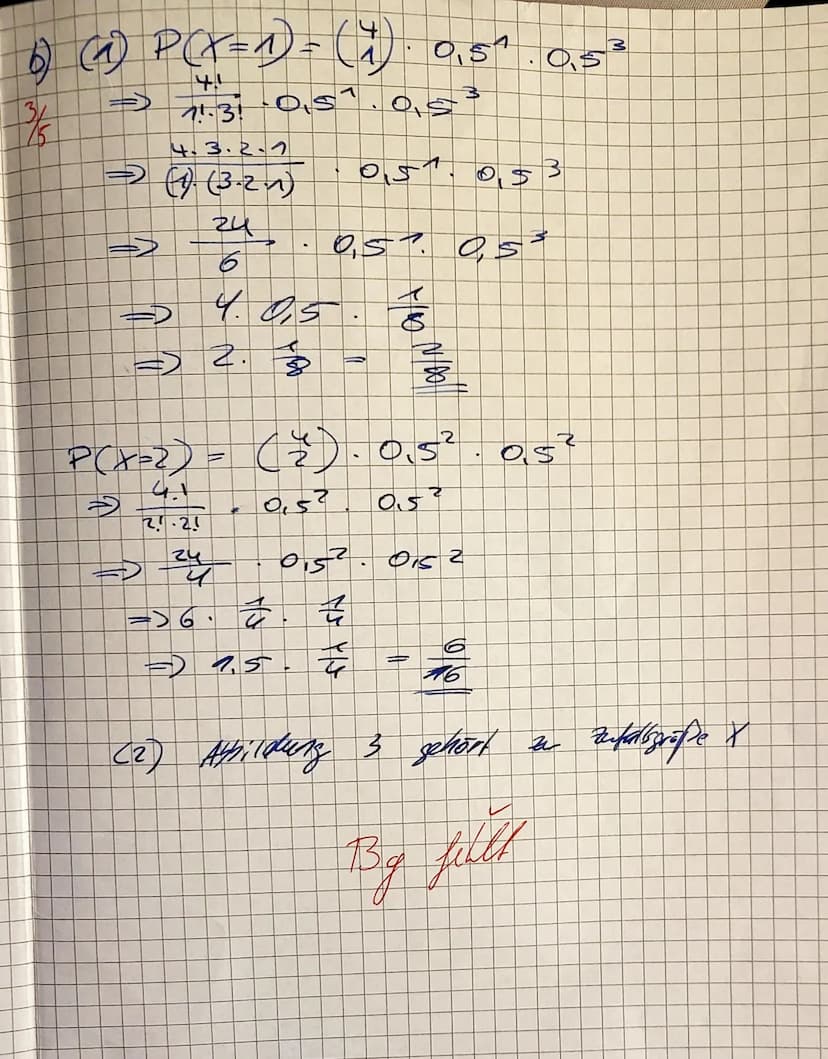 b) (1) P(X=1) = (4 1) · 0,5^1 · 0,5^3
3/5
=> 4!/(1!·3!) · 0,5^1 · 0,5^3
=> (4·3·2·1)/((1)·(3·2·1)) · 0,5^1 · 0,5^3
=> 24/6 · 0,5^1 · 0,5^3
=> 4 · 0,5 · 1/8
=> 2 · 1/8 = 2/8
P(X=2) = (4 2) · 0,5^2 · 0,5^2
=> 4!/(2!·2!) · 0,5^2 · 0,5^2
=> 24/4 · 0,5^2 · 0,5^2
=> 6 · 1/4 · 1/4
=> 1,5 · 1/4 = 6/16
(2) Abbildung 3 gehört zu Zufallsgröße X
Bg fehlt